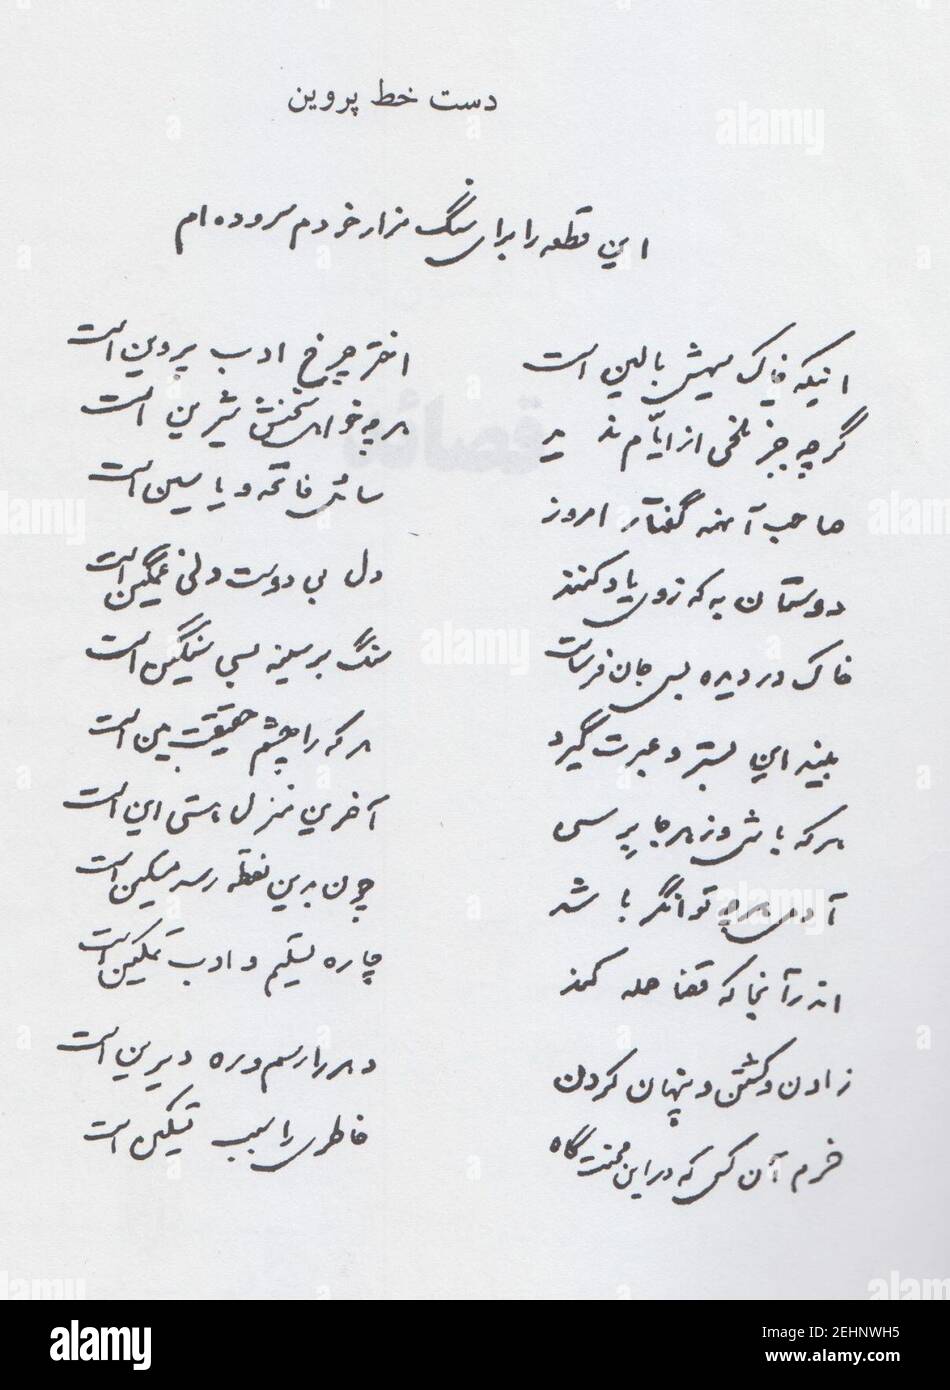 دست خط پروین
این قطعه را برای سنگ مزار خودم سروده ام
اینکه خاک سیهش بالین است اختر چرخ ادب پروین است
گرچه جز تلخی از ایّام ندید هرچه خواهی سخنش شیرین است
صاحب آنهمه گفتار امروز سائل فاتحه و یاسین است
دوستان به که ز وی یاد کنند دل بی دوست دلی غمگین است
خاک در دیده بسی جان فرساست سنگ بر سینه بسی سنگین است
بیند این بستر و عبرت گیرد هر که را چشم حقیقت بین است
هر که باشی و ز هر جا برسی آخرین منزل هستی این است
آدمی هر چه توانگر باشد چون بدین نقطه رسد مسکین است
اندر آنجا که قضا حمله کند چاره تسلیم و ادب تمکین است
زادن و کشتن و پنهان کردن دهر را رسم و ره دیرین است
خرم آن کس که در این محنت گاه خاطری را سبب تسکین است
قصائد
alamy
Image ID: 2EHNWH5
www.alamy.com